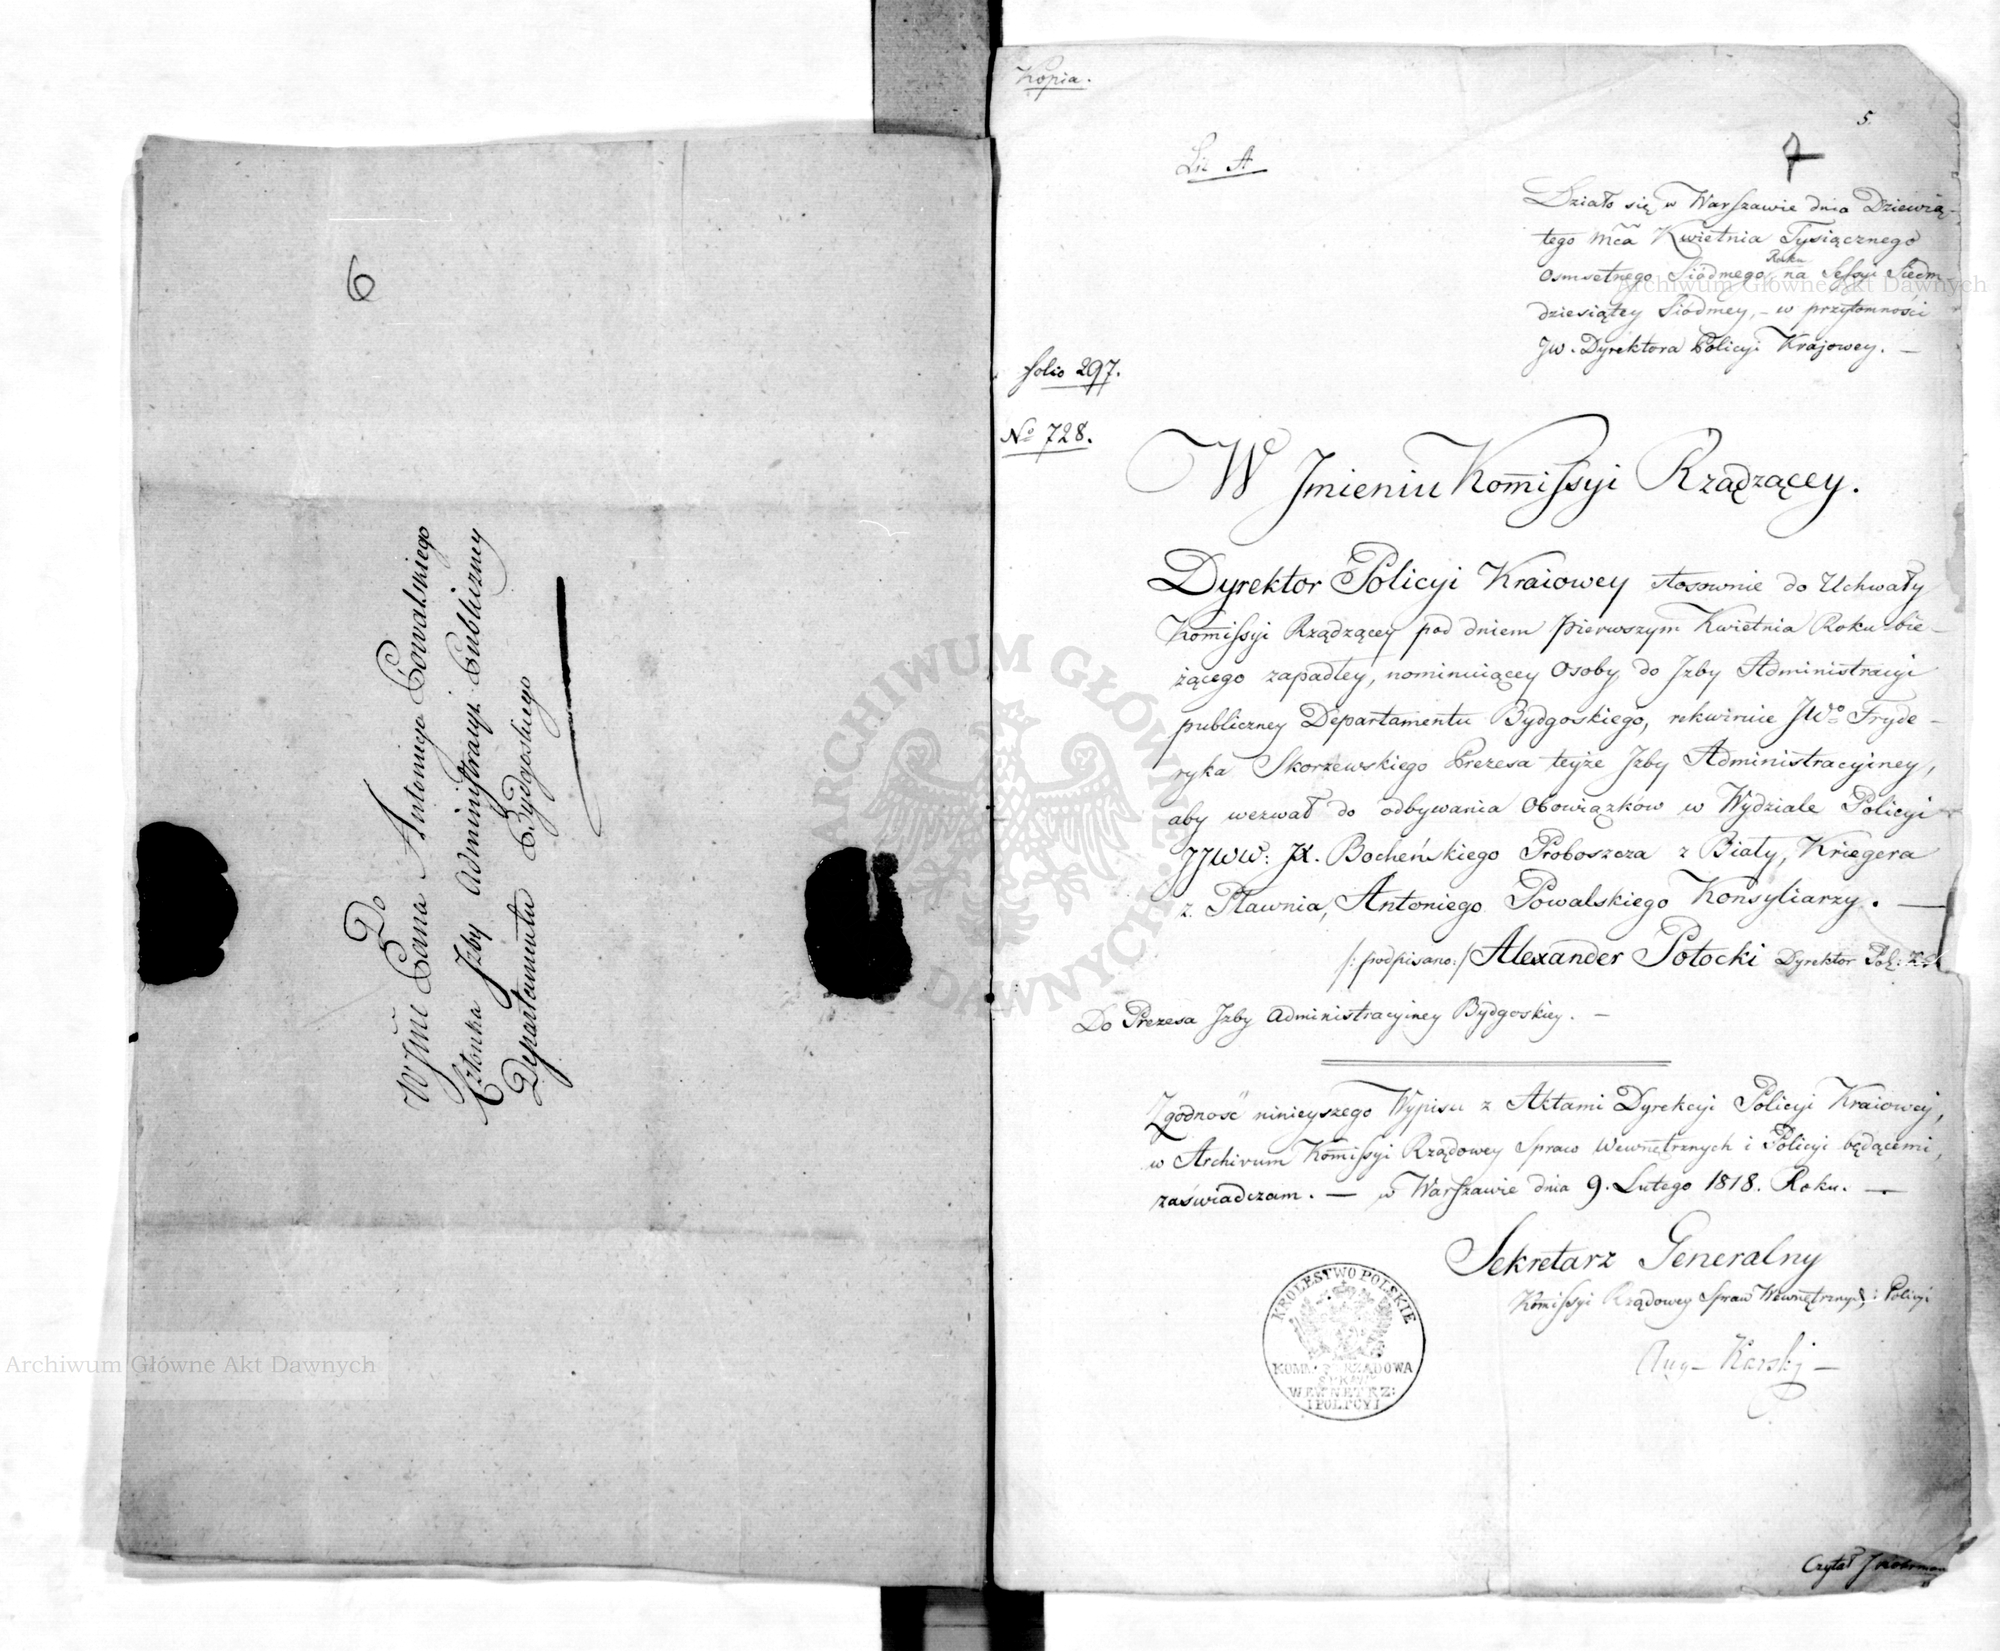 6
Do
WJmć Pana Antoniego Powalskiego
Członka Jzby Administracyi Publiczney
Departamentu Bydgoskiego
Kopia.
5.
7
Lit A
Działo się w Warszawie dnia Dziewią-
tego Mca Kwietnia Tysiącznego
Osmsetnego Siódmego Roku na Sessyi Siedm-
dziesiątey Siódmey, – w przytomności
JW. Dyrektora Policyi Krajowey. —
folio 297.
No 728.
W Jmieniu Kommissyi Rządzącey.
Dyrektor Policyi Kraiowey stosownie do Uchwały
Kommissyi Rządzącey pod dniem pierwszym Kwietnia Roku bie-
żącego zapadłey, nominuiącey Osoby do Jzby Administracyi
publiczney Departamentu Bydgoskiego, rekwiruie JWo Fryde-
ryka Skorzewskiego Prezesa teyże Jzby Administracyiney,
aby wezwał do odbywania Obowiązków w Wydziale Policyi
JJWW: JX. Bocheńskiego Proboszcza z Biały, Kriegera
z Pławnia, Antoniego Powalskiego Konsyliarzy. —
/: podpisano :/ Alexander Potocki Dyrektor Pol: Kr
Do Prezesa Jzby Administracyiney Bydgoskiey. —
Zgodność ninieyszego Wypisu z Aktami Dyrekcyi Policyi Kraiowey,
w Archivum Kommissyi Rządowey Spraw Wewnętrznych i Policyi będącemi,
zaświadczam. — w Warszawie dnia 9. Lutego 1818. Roku. —
Sekretarz Generalny
Kommissyi Rządowey Spraw Wewnętrznych i Policyi
Aug– Karski —
KROLESTWO POLSKIE
KOMM: RZADOWA
SPRAW
WEWNETRZ:
I POLICYI
Czytał
Archiwum Główne Akt Dawnych
Archiwum Główne Akt Dawnych
ARCHIWUM GŁÓWNE AKT DAWNYCH